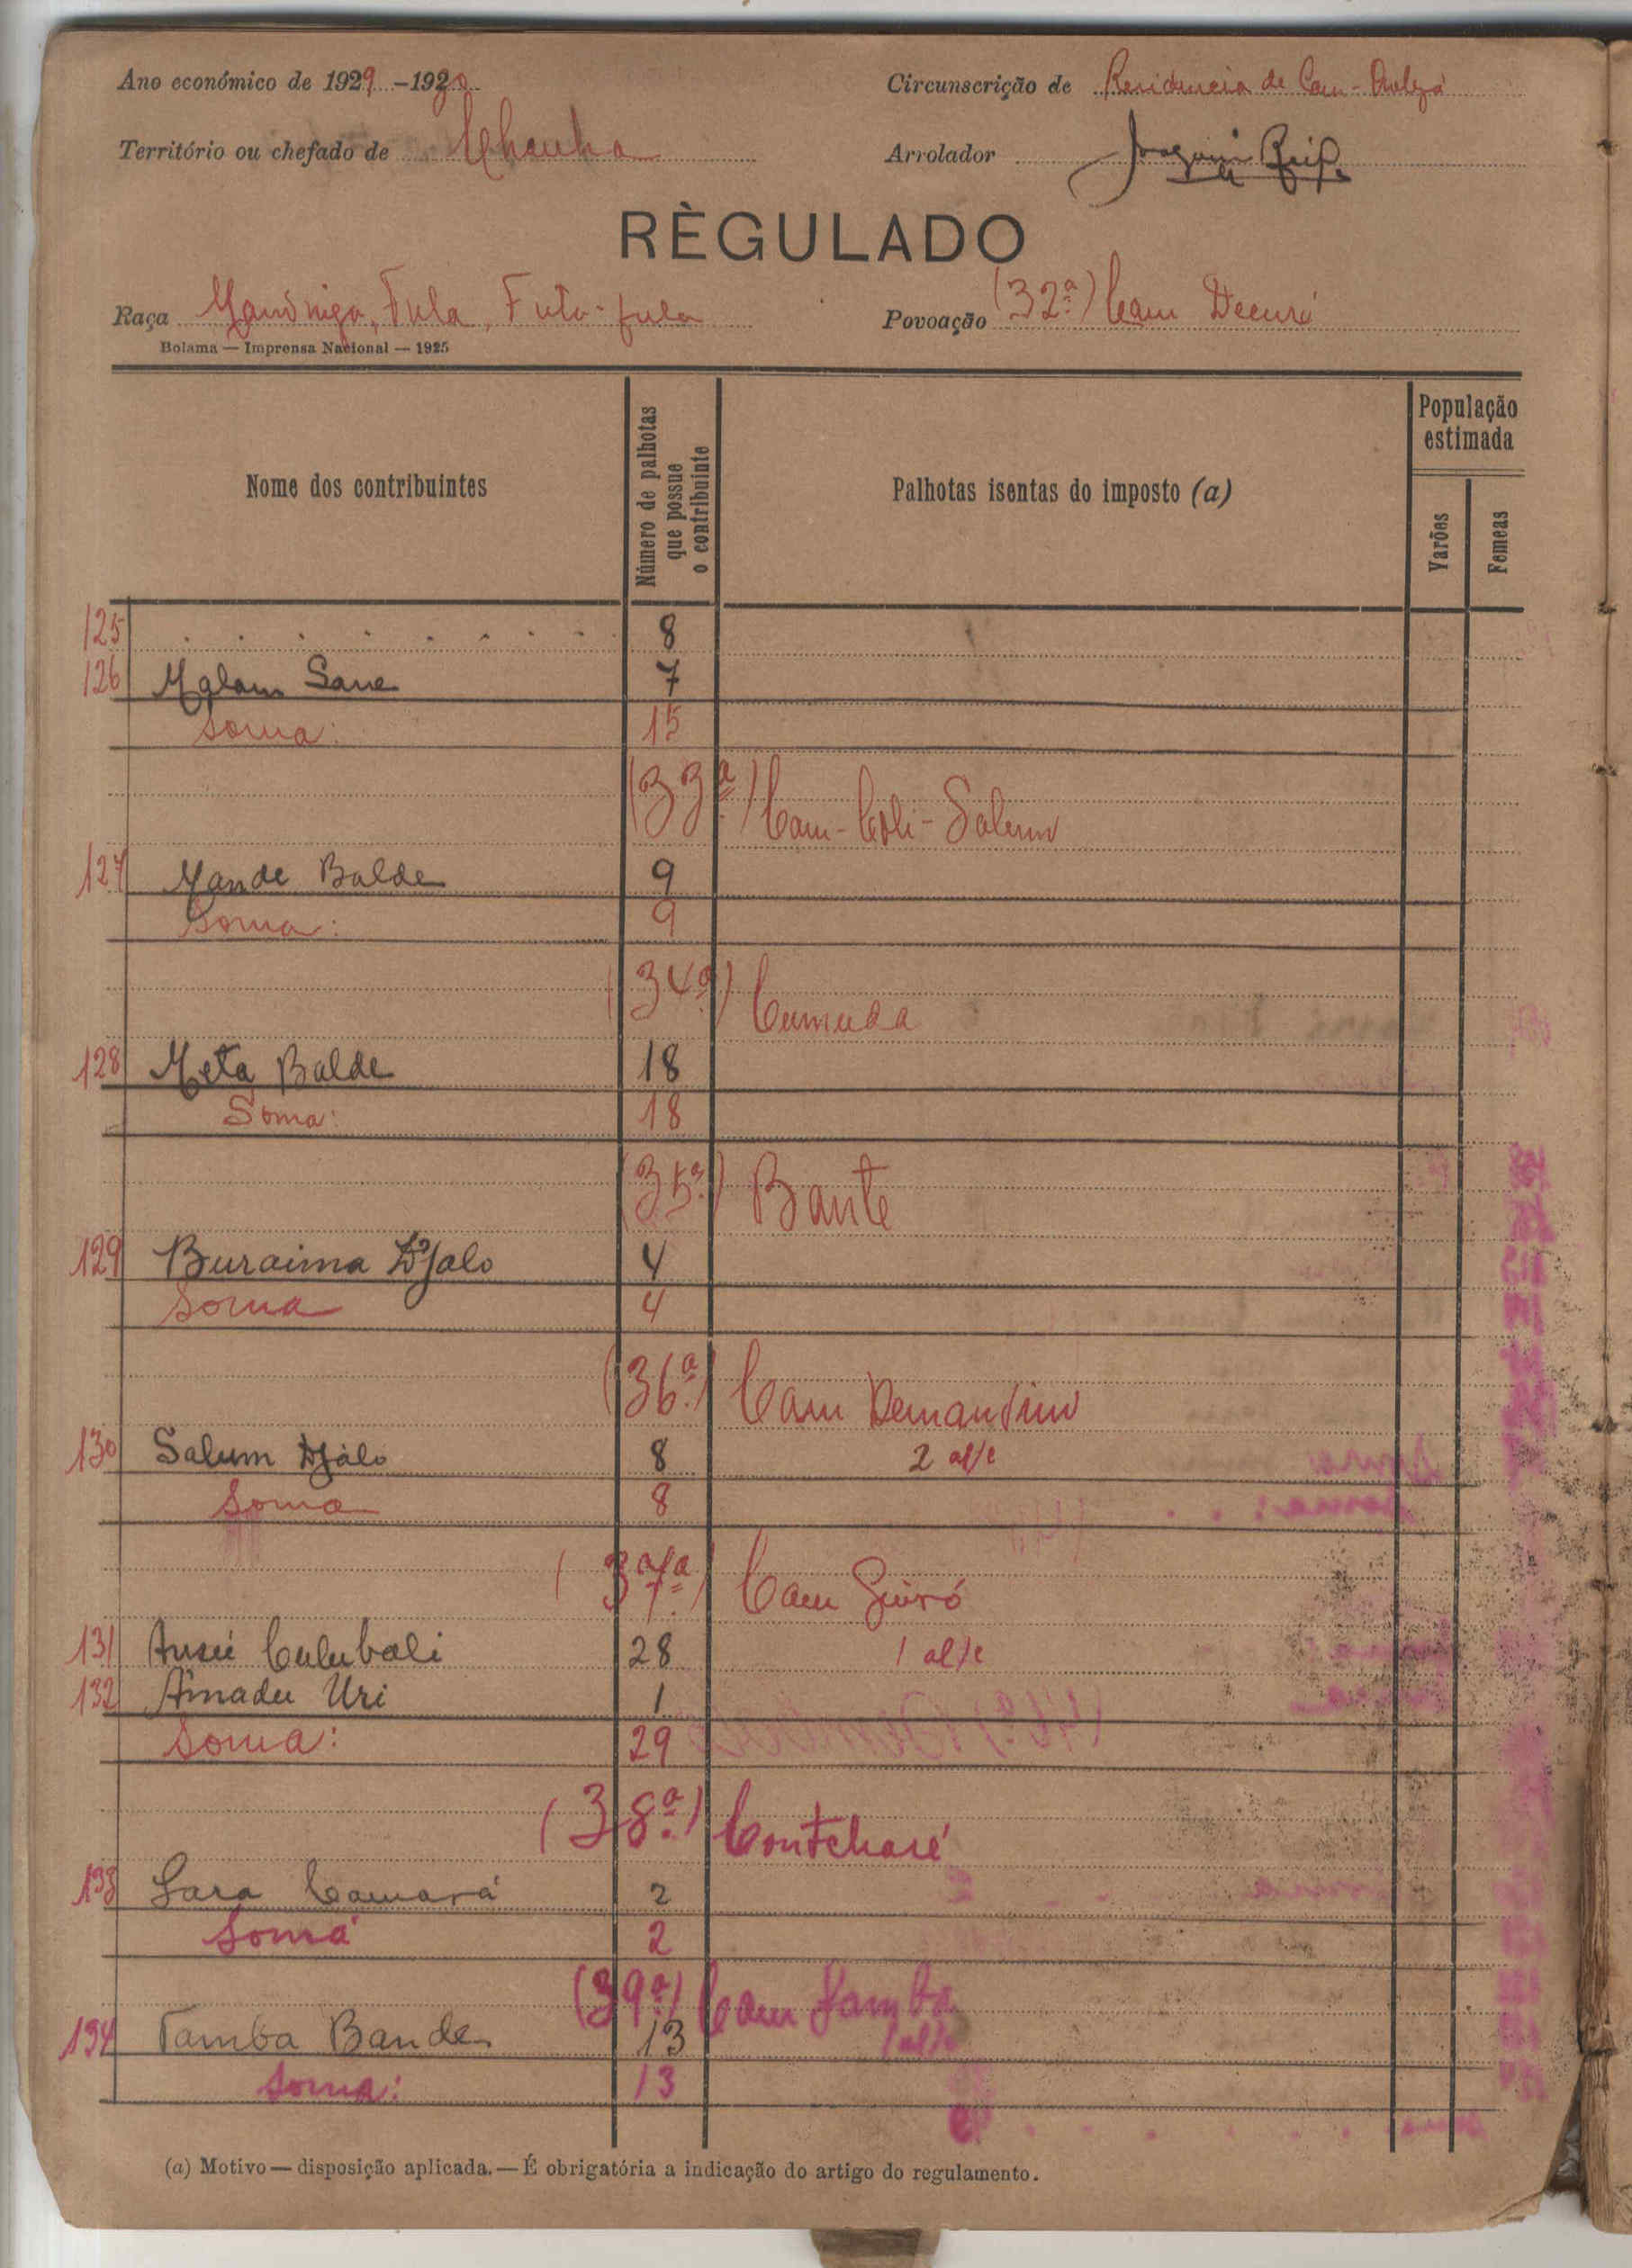 Ano económico de 1929-1930
Circunscrição de Residencia de Cam-
Território ou chefado de Chanha
Arrolador Joaquim
RÈGULADO
Raça Mandniga, Fula, Futa-fula
Povoação (32ª) Cam Decuré
Bolama — Imprensa Nacional — 1925
Nome dos contribuintes
Número de palhotas que possue o contribuinte
Palhotas isentas do imposto (a)
População estimada
Varões
Femeas
125 . . . . . . . . 8
126 Malam Sane 7
Soma: 15
(33ª) Cam-Coli-Salum
127 Mande Balde 9
Soma: 9
(34ª) Cumuda
128 Meta Balde 18
Soma: 18
(35ª) Bante
129 Buraima Djalo 4
Soma 4
(36ª) Cam Demandim
130 Salum Djalo 8 2 al/e
Soma 8
(37ª) Cam Guiró
131 Culubali 28 1 al/e
132 Amadu Uri 1
Soma: 29
(38ª) Contcharé
133 Sara Camará 2
Soma 2
(39ª) Cam Samba
134 Tamba Bande 13 1 al/e
Soma: 13
(a) Motivo — disposição aplicada. — É obrigatória a indicação do artigo do regulamento.